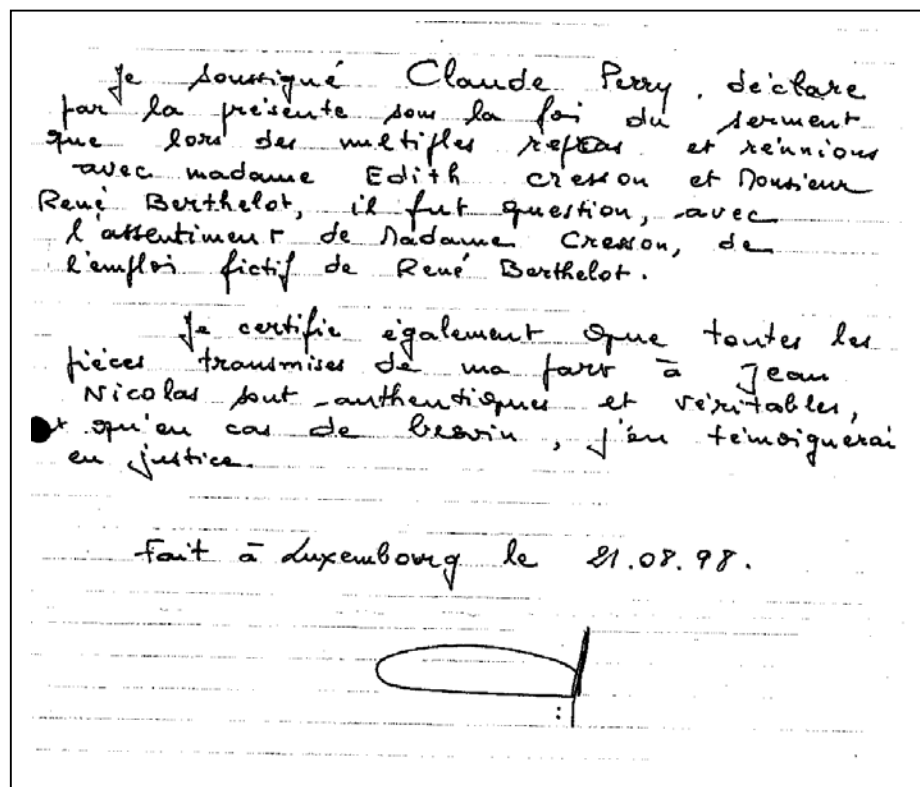 Je soussigné Claude Perry, déclare
par la présente sous la foi du serment
que lors des multiples repas et réunions
avec madame Edith Cresson et Monsieur
René Berthelot, il fut question, avec
l'assentiment de Madame Cresson, de
l'emploi fictif de René Berthelot.
Je certifie également que toutes les
pièces transmises de ma part à Jean
Nicolas sont authentiques et véritables,
et qu'en cas de besoin, j'en témoignerai
en justice.
Fait à Luxembourg le 21.08.98.